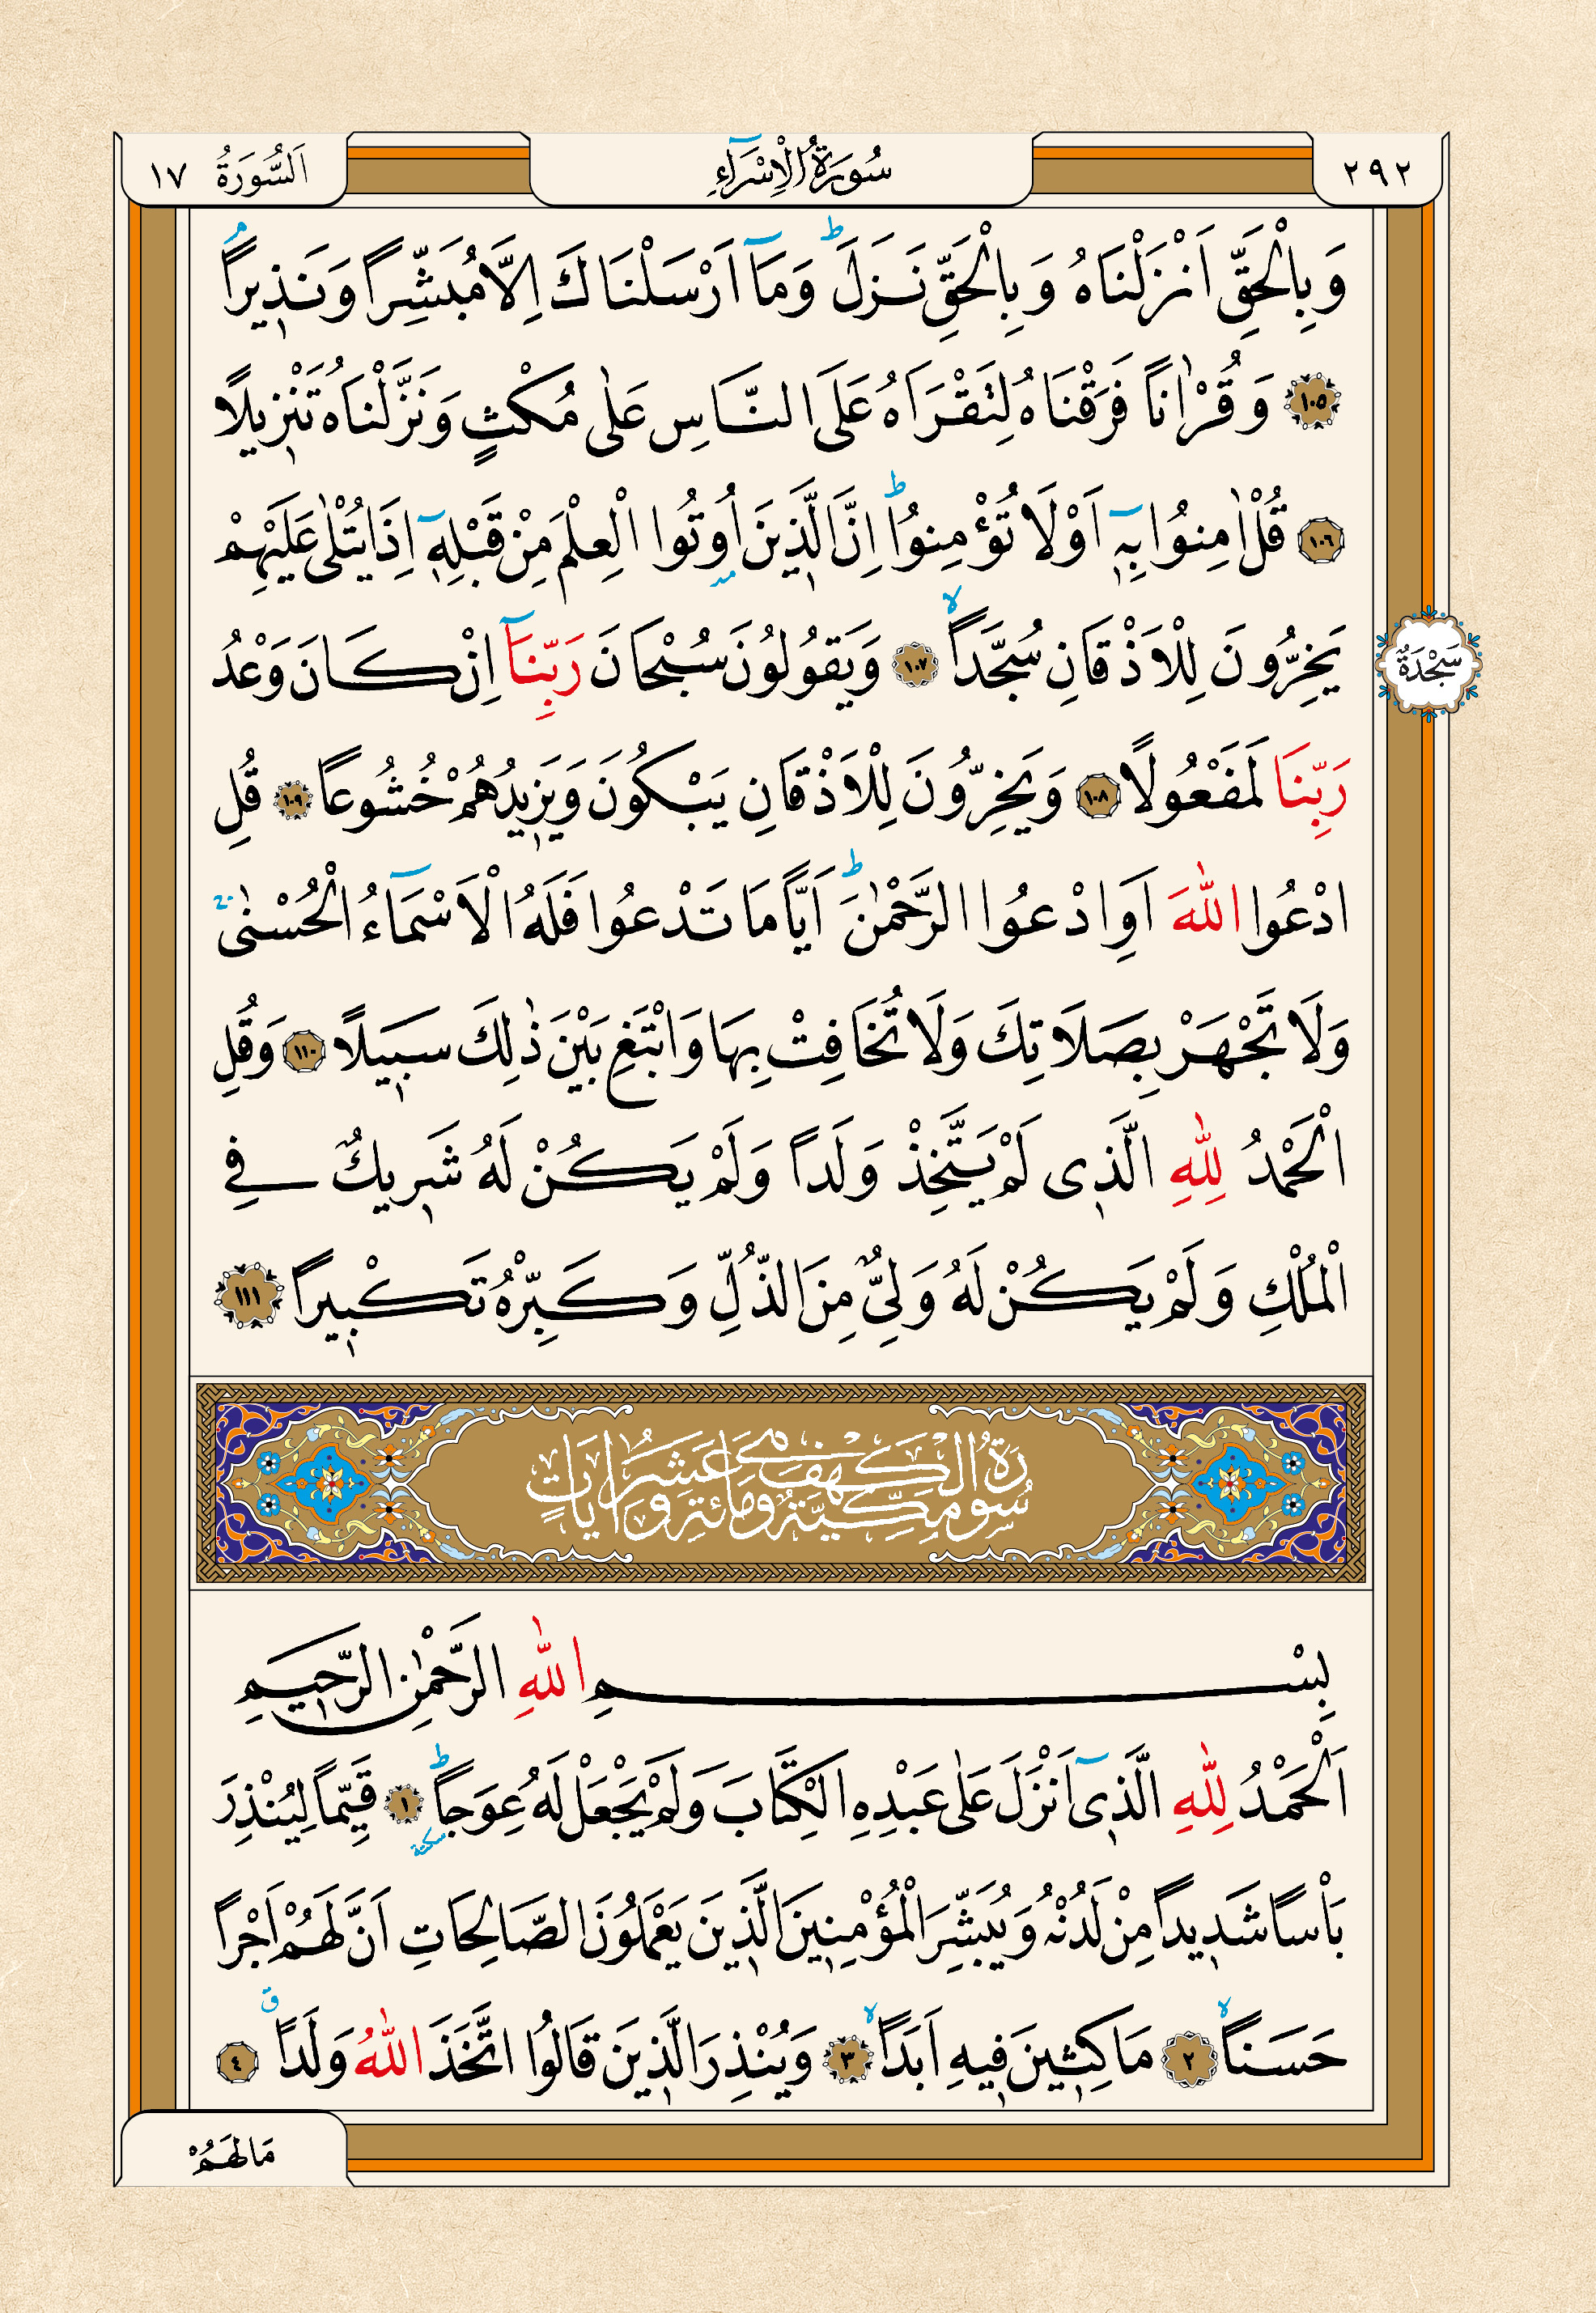 ٢٩٢
سُورَةُ الْاِسْرَٓاءِ
اَلسُّورَةُ ١٧
وَبِالْحَقِّ اَنْزَلْنَاهُ وَبِالْحَقِّ نَزَلَۜ وَمَٓا اَرْسَلْنَاكَ اِلَّا مُبَشِّراً وَنَذ۪يراًۢ
﴿١٠٥﴾ وَقُرْاٰناً فَرَقْنَاهُ لِتَقْرَاَهُ عَلَى النَّاسِ عَلٰى مُكْثٍ وَنَزَّلْنَاهُ تَنْز۪يلاً
﴿١٠٦﴾ قُلْ اٰمِنُوا بِه۪ٓ اَوْ لَا تُؤْمِنُواۜ اِنَّ الَّذ۪ينَ اُو۫تُوا الْعِلْمَ مِنْ قَبْلِه۪ٓ اِذَا يُتْلٰى عَلَيْهِمْ
يَخِرُّونَ لِلْاَذْقَانِ سُجَّداًۙ ﴿١٠٧﴾ وَيَقُولُونَ سُبْحَانَ رَبِّنَٓا اِنْ كَانَ وَعْدُ
سَجْدَةٌ
رَبِّنَا لَمَفْعُولاً ﴿١٠٨﴾ وَيَخِرُّونَ لِلْاَذْقَانِ يَبْكُونَ وَيَز۪يدُهُمْ خُشُوعاً ﴿١٠٩﴾ قُلِ
ادْعُوا اللّٰهَ اَوِ ادْعُوا الرَّحْمٰنَۜ اَياًّ مَا تَدْعُوا فَلَهُ الْاَسْمَٓاءُ الْحُسْنٰىۚ
وَلَا تَجْهَرْ بِصَلَاتِكَ وَلَا تُخَافِتْ بِهَا وَابْتَغِ بَيْنَ ذٰلِكَ سَب۪يلاً ﴿١١٠﴾ وَقُلِ
الْحَمْدُ لِلّٰهِ الَّذ۪ي لَمْ يَتَّخِذْ وَلَداً وَلَمْ يَكُنْ لَهُ شَر۪يكٌ فِي
الْمُلْكِ وَلَمْ يَكُنْ لَهُ وَلِيٌّ مِنَ الذُّلِّ وَكَبِّرْهُ تَكْب۪يراً ﴿١١١﴾
سُورَةُ الْكَهْفِ مَكِّيَّةٌ وَهِيَ مِائَةٌ وَعَشْرُ اٰيَاتٍ
بِسْمِ اللّٰهِ الرَّحْمٰنِ الرَّح۪يمِ
اَلْحَمْدُ لِلّٰهِ الَّذ۪ٓي اَنْزَلَ عَلٰى عَبْدِهِ الْكِتَابَ وَلَمْ يَجْعَلْ لَهُ عِوَجاًۜ سكتة ﴿١﴾ قَيِّماً لِيُنْذِرَ
بَأْساً شَد۪يداً مِنْ لَدُنْهُ وَيُبَشِّرَ الْمُؤْمِن۪ينَ الَّذ۪ينَ يَعْمَلُونَ الصَّالِحَاتِ اَنَّ لَهُمْ اَجْراً
حَسَناًۙ ﴿٢﴾ مَاكِث۪ينَ ف۪يهِ اَبَداًۙ ﴿٣﴾ وَيُنْذِرَ الَّذ۪ينَ قَالُوا اتَّخَذَ اللّٰهُ وَلَداًۗ ﴿٤﴾
مَا لَهُمْ